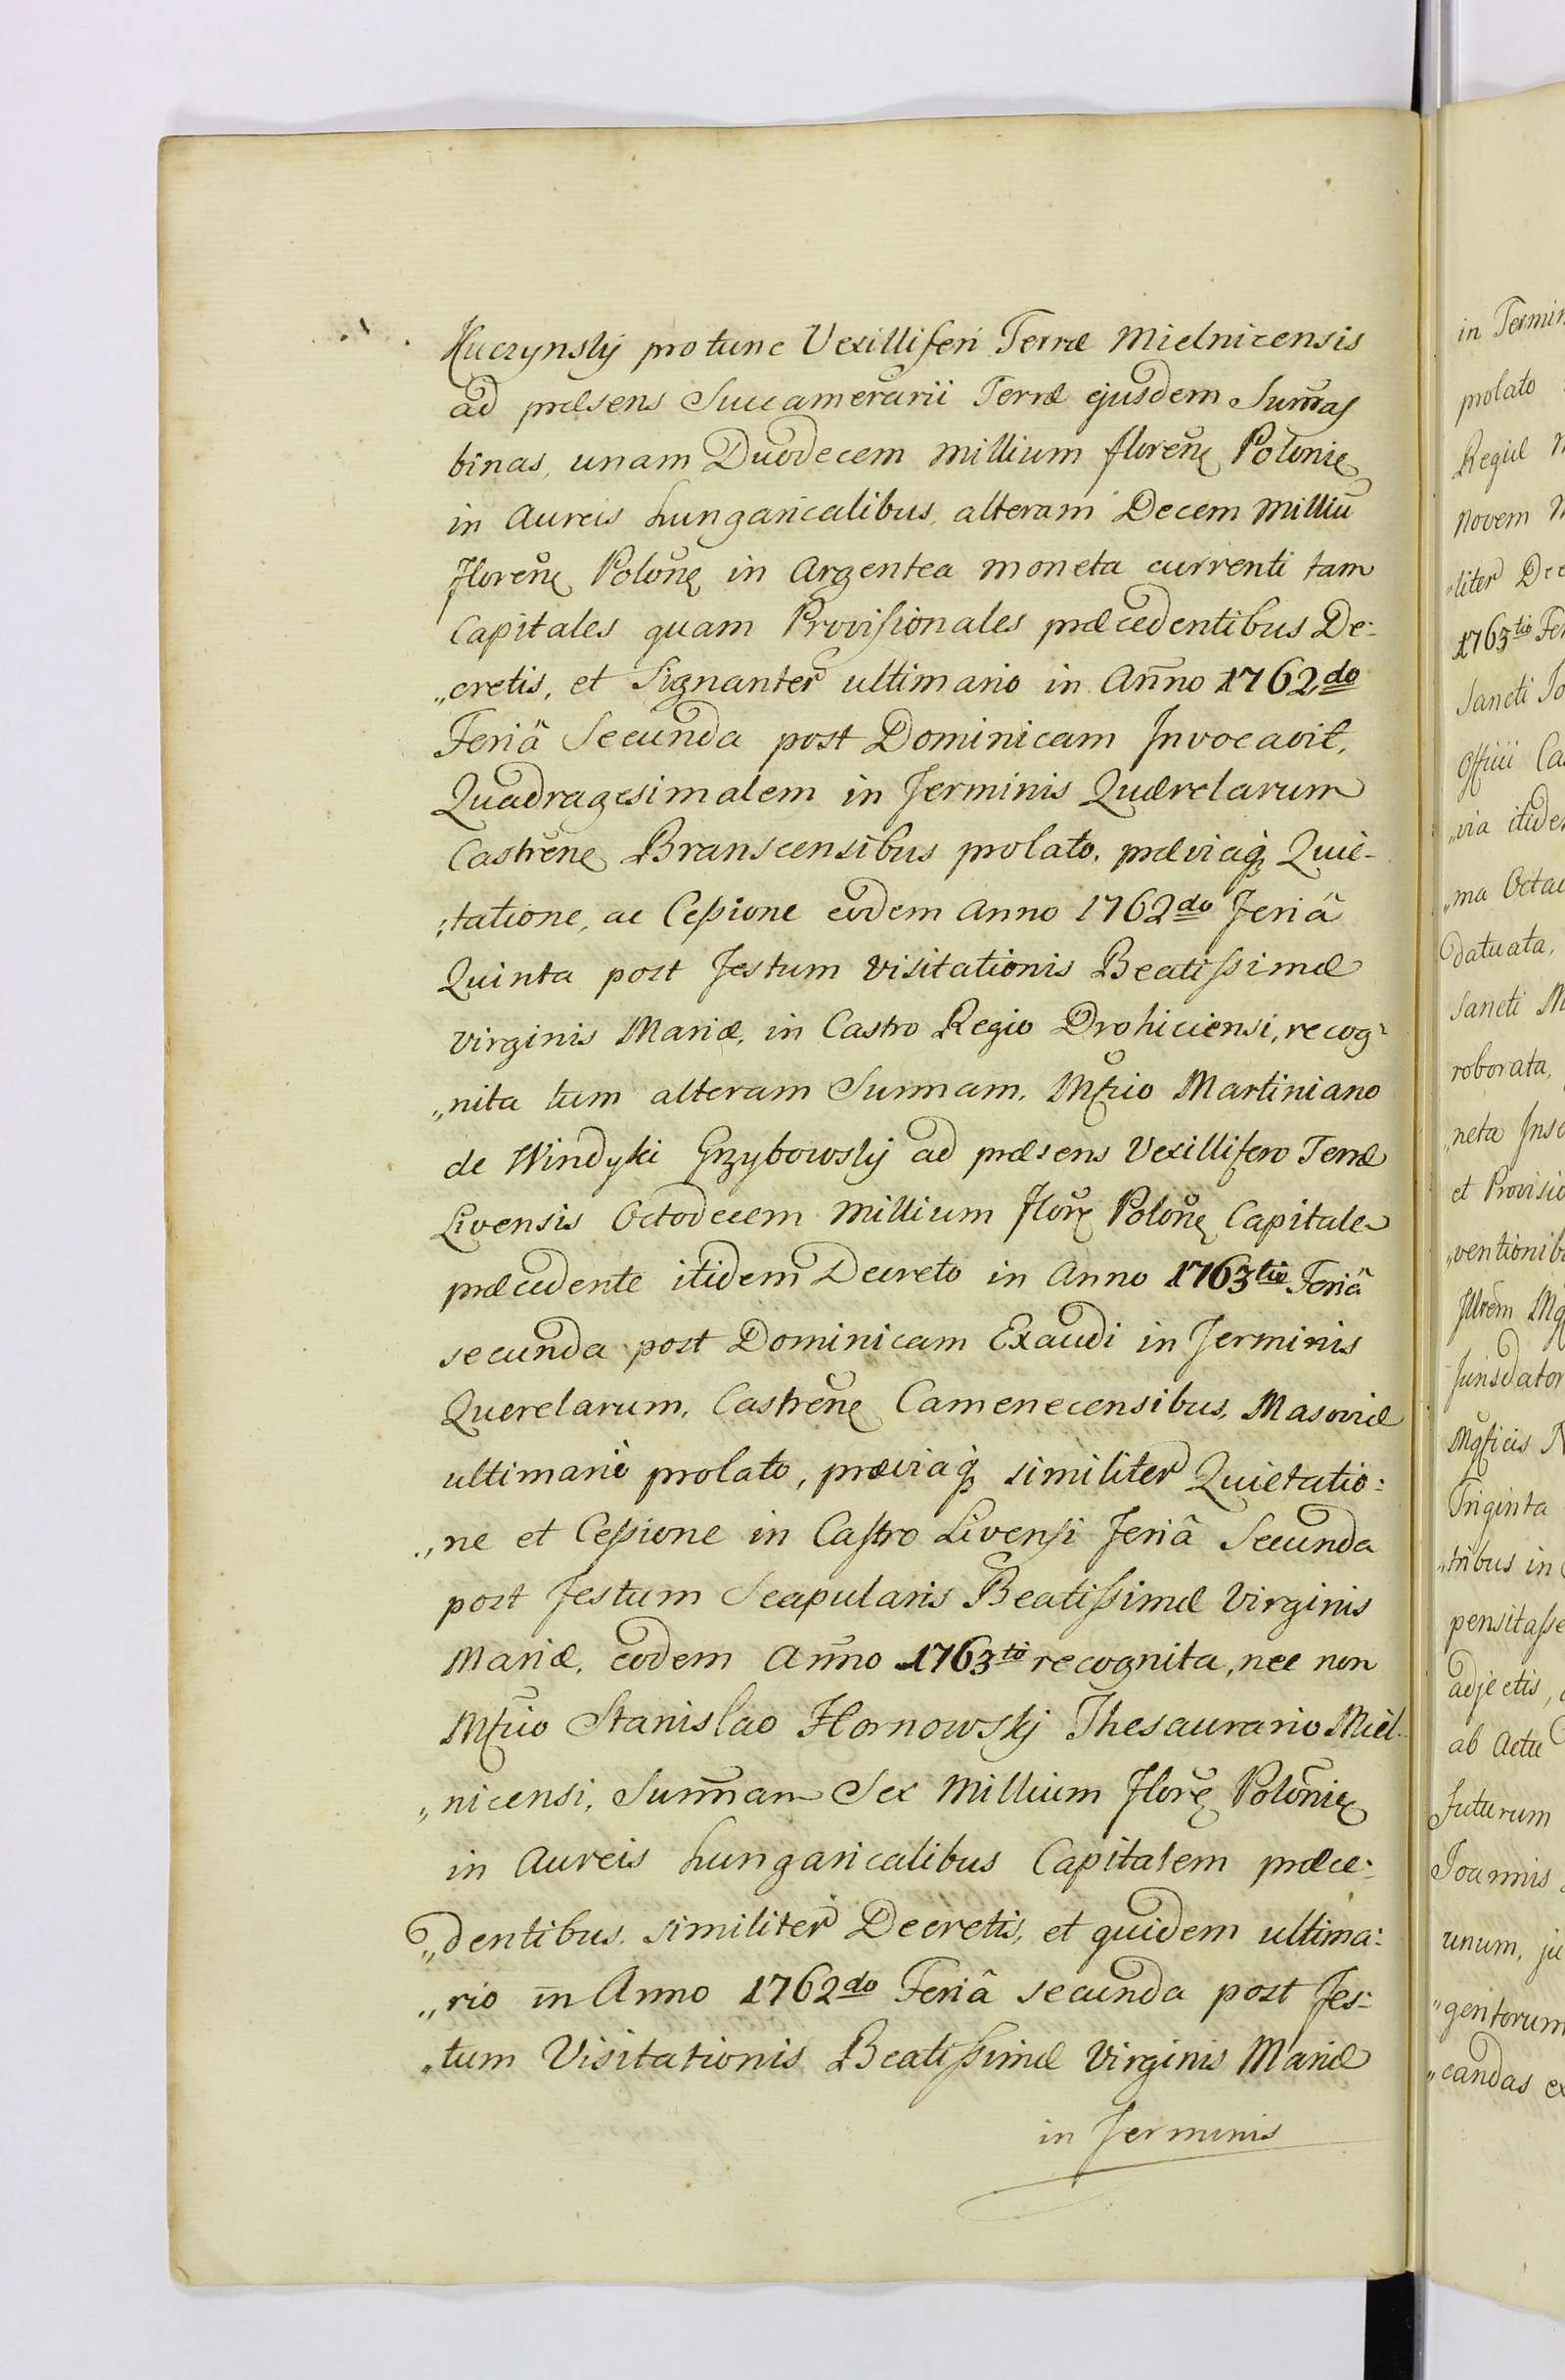 Kuczynskÿ pro tunc Vexilliferi Terræ Mielnicensis
ad præsens Succamerarii Terræ ejusdem Sum̃as
binas, unam Duodecem millium florenę Polonię
in Aureis hungaricalibus, alteram Decem Milliũ
florenę Polonę in Argentea moneta currenti tam
Capitales quam Provisionales præcedentibus De:
„cretis, et Signanter ultimario in Añno 1762do
Feriâ Secunda post Dominicam Invocavit,
Quadragesimalem in Terminis Quærelarum
Castrenę Branscensibus prolato, præviaq; Quie-
:tatione, ac Cessione eodem Anno 1762do Feriâ
Quinta post Festum Visitationis Beatissimæ
Virginis Mariæ, in Castro Regio Drohiciensi, recog-
„nita tum alteram Summam, Mfico Martiniano
de Windyki Grzybowskÿ ad præsens Vexillifero Terræ
Livensis Octodecem Millium florę Polonę Capitale
præcedente itidem Decreto in Anno 1763tio Feriâ
secunda post Dominicam Exaudi in Terminis
Querelarum, Castrenę Camenecensibus, Masoviæ
ultimariè prolato, præviaq; similiter Quietatio:
„ne et Cessione in Castro Livensi Feriâ Secunda
post Festum Scapularis Beatissimæ Virginis
Mariæ, eodem Añno 1763tio recognita, nec non
Mfico Stanislao Hornowskj Thesaurario Miel-
„nicensi, Sum̃mam Sex Millium florę Polonię
in Aureis hungaricalibus Capitalem præce:
„dentibus, similiter Decretis, et quidem ultima:
„rio in Anno 1762do Feriâ secunda post Fes:
„tum Visitationis Beatissimæ Virginis Mariæ
in Terminis
in Termin
prolato
Regiæ
Novem
„liter Dec
1763tio Fer
Sancti Jo
Officii Ca
„via itide
„ma Octa
datuata,
Sancti M
roborata,
„neta Ins
et Provisio
„ventionib
Jurisdator
Triginta
„tribus in
pensitasse
adjectis,
ab Actu
futurum
Joannis
unum, ju
„gentorum
„candas ex